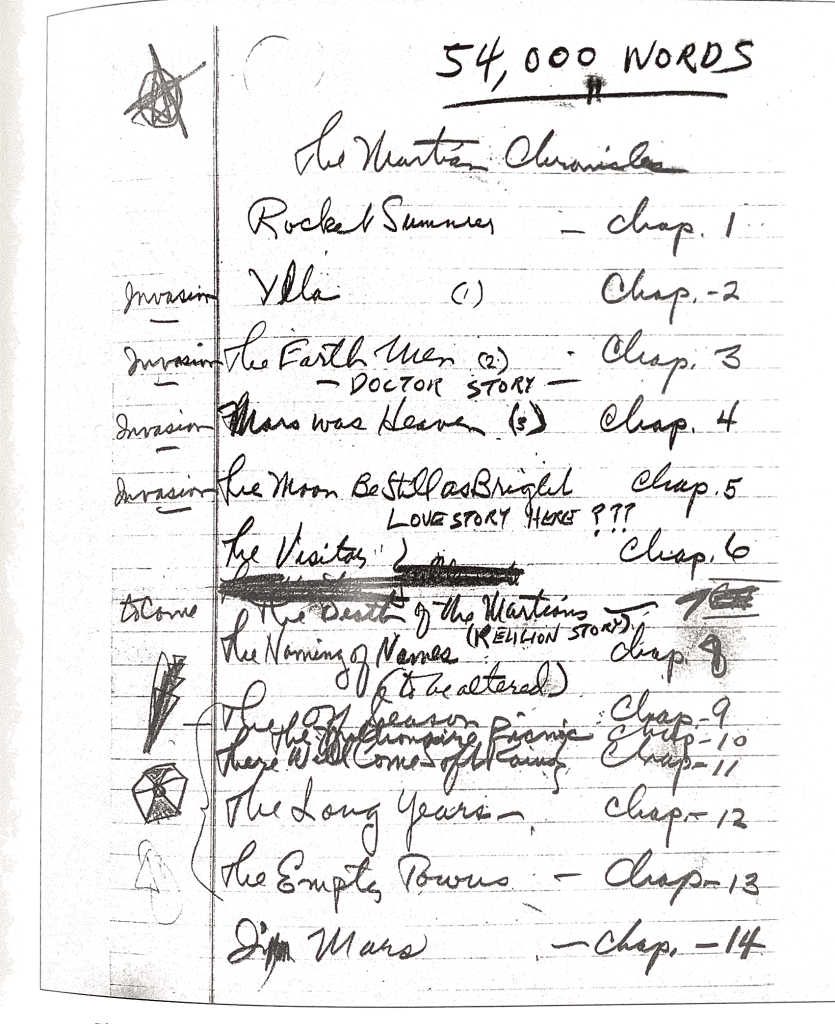 54,000 WORDS
The Martian Chronicles
Rocket Summer — Chap. 1
Invasion Ylla (1) Chap. - 2
Invasion The Earth Men (2) - Chap. 3
— DOCTOR STORY —
Invasion Mars was Heaven (3) Chap. 4
Invasion The Moon Be Still as Bright Chap. 5
LOVE STORY HERE ???
The Visitor Chap. 6
to Come The Death of the Martians — 7
(RELIGION STORY)
The Naming of Names Chap. 8
(to be altered)
The Off Season Chap - 9
The Million Year Picnic Chap - 10
There Will Come Soft Rains Chap - 11
The Long Years — Chap - 12
The Empty Towns — Chap - 13
Mars — Chap. - 14